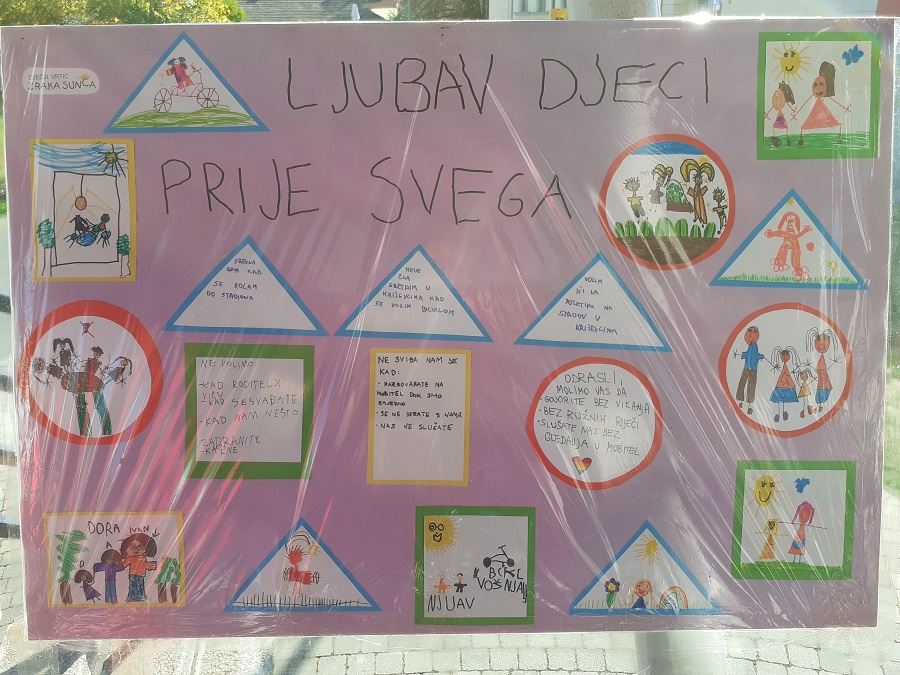 DJEČJI VRTIĆ
ZRAKA SUNCA
LJUBAV DJECI
PRIJE SVEGA
SRETNA
SAM KAD
SE ROLAM
DO STADIONA
NEVE
ČINA
SRETNIM U
KRIŽEVCIMA KAD
SE VOZIM BICIKLOM
VOLIM
IĆI NA
ATLETIKU NA
STADION U
KRIŽEVCIMA
NE VOLIMO:
-KAD RODITELJI
VIČU
-KAD SE SVAĐATE
-KAD NAM NEŠTO
ZABRANITE
-KAZNE
NE SVIĐA NAM SE
KAD:
• RAZGOVARATE NA
MOBITEL DOK SMO
ZAJEDNO
• SE NE IGRATE S NAMA
• NAS NE SLUŠATE
ODRASLI,
MOLIMO VAS DA
• GOVORITE BEZ VIKANJA
• BEZ RUŽNIH RIJEČI
• SLUŠATE NAS BEZ
GLEDANJA U MOBITEL
DORA
IVAN
NJUAV
BCKL
VOŠNJA